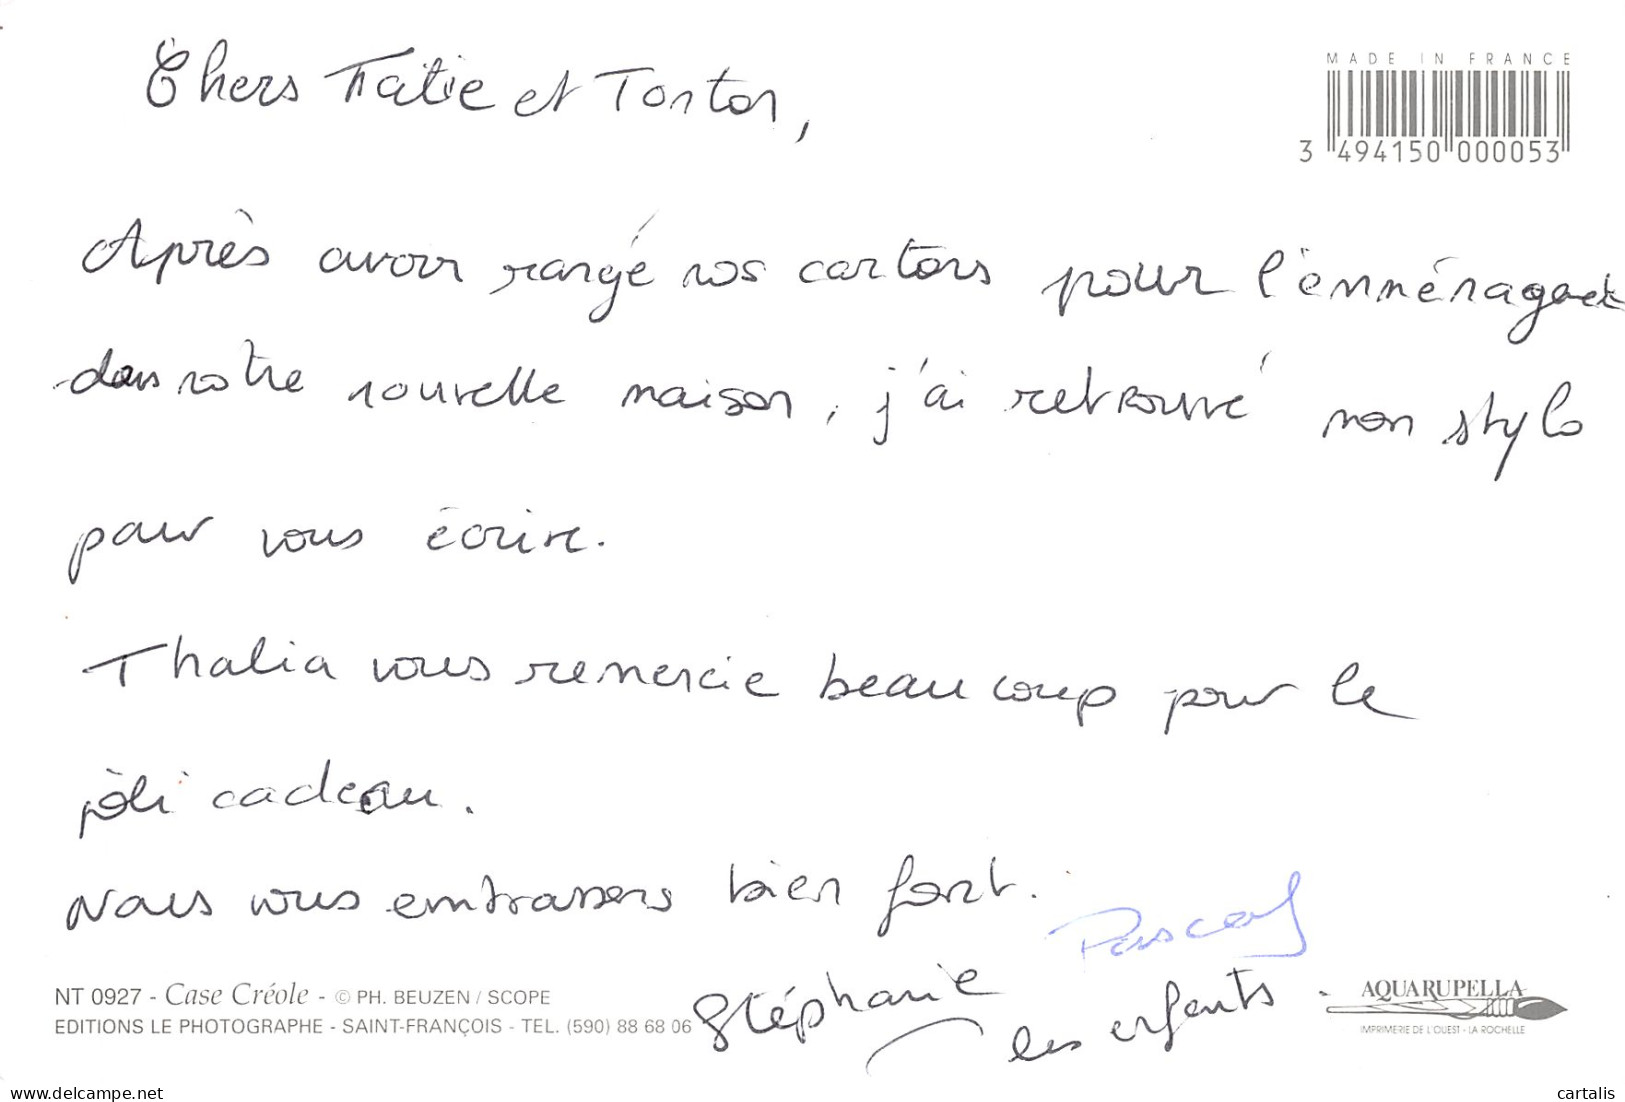 MADE IN FRANCE
3 494150 000053
Chers Tatie et Tonton,
Après avoir rangé nos cartons pour l'emménagement
dans notre nouvelle maison, j'ai retrouvé mon stylo
pour vous écrire.
Thalia vous remercie beaucoup pour le
joli cadeau.
Nous vous embrassons bien fort.
Pascal
Stéphanie
les enfants.
NT 0927 - Case Créole - © PH. BEUZEN / SCOPE
EDITIONS LE PHOTOGRAPHE - SAINT-FRANÇOIS - TEL. (590) 88 68 06
AQUARUPELLA
IMPRIMERIE DE L'OUEST - LA ROCHELLE
delcampe.net
cartalis